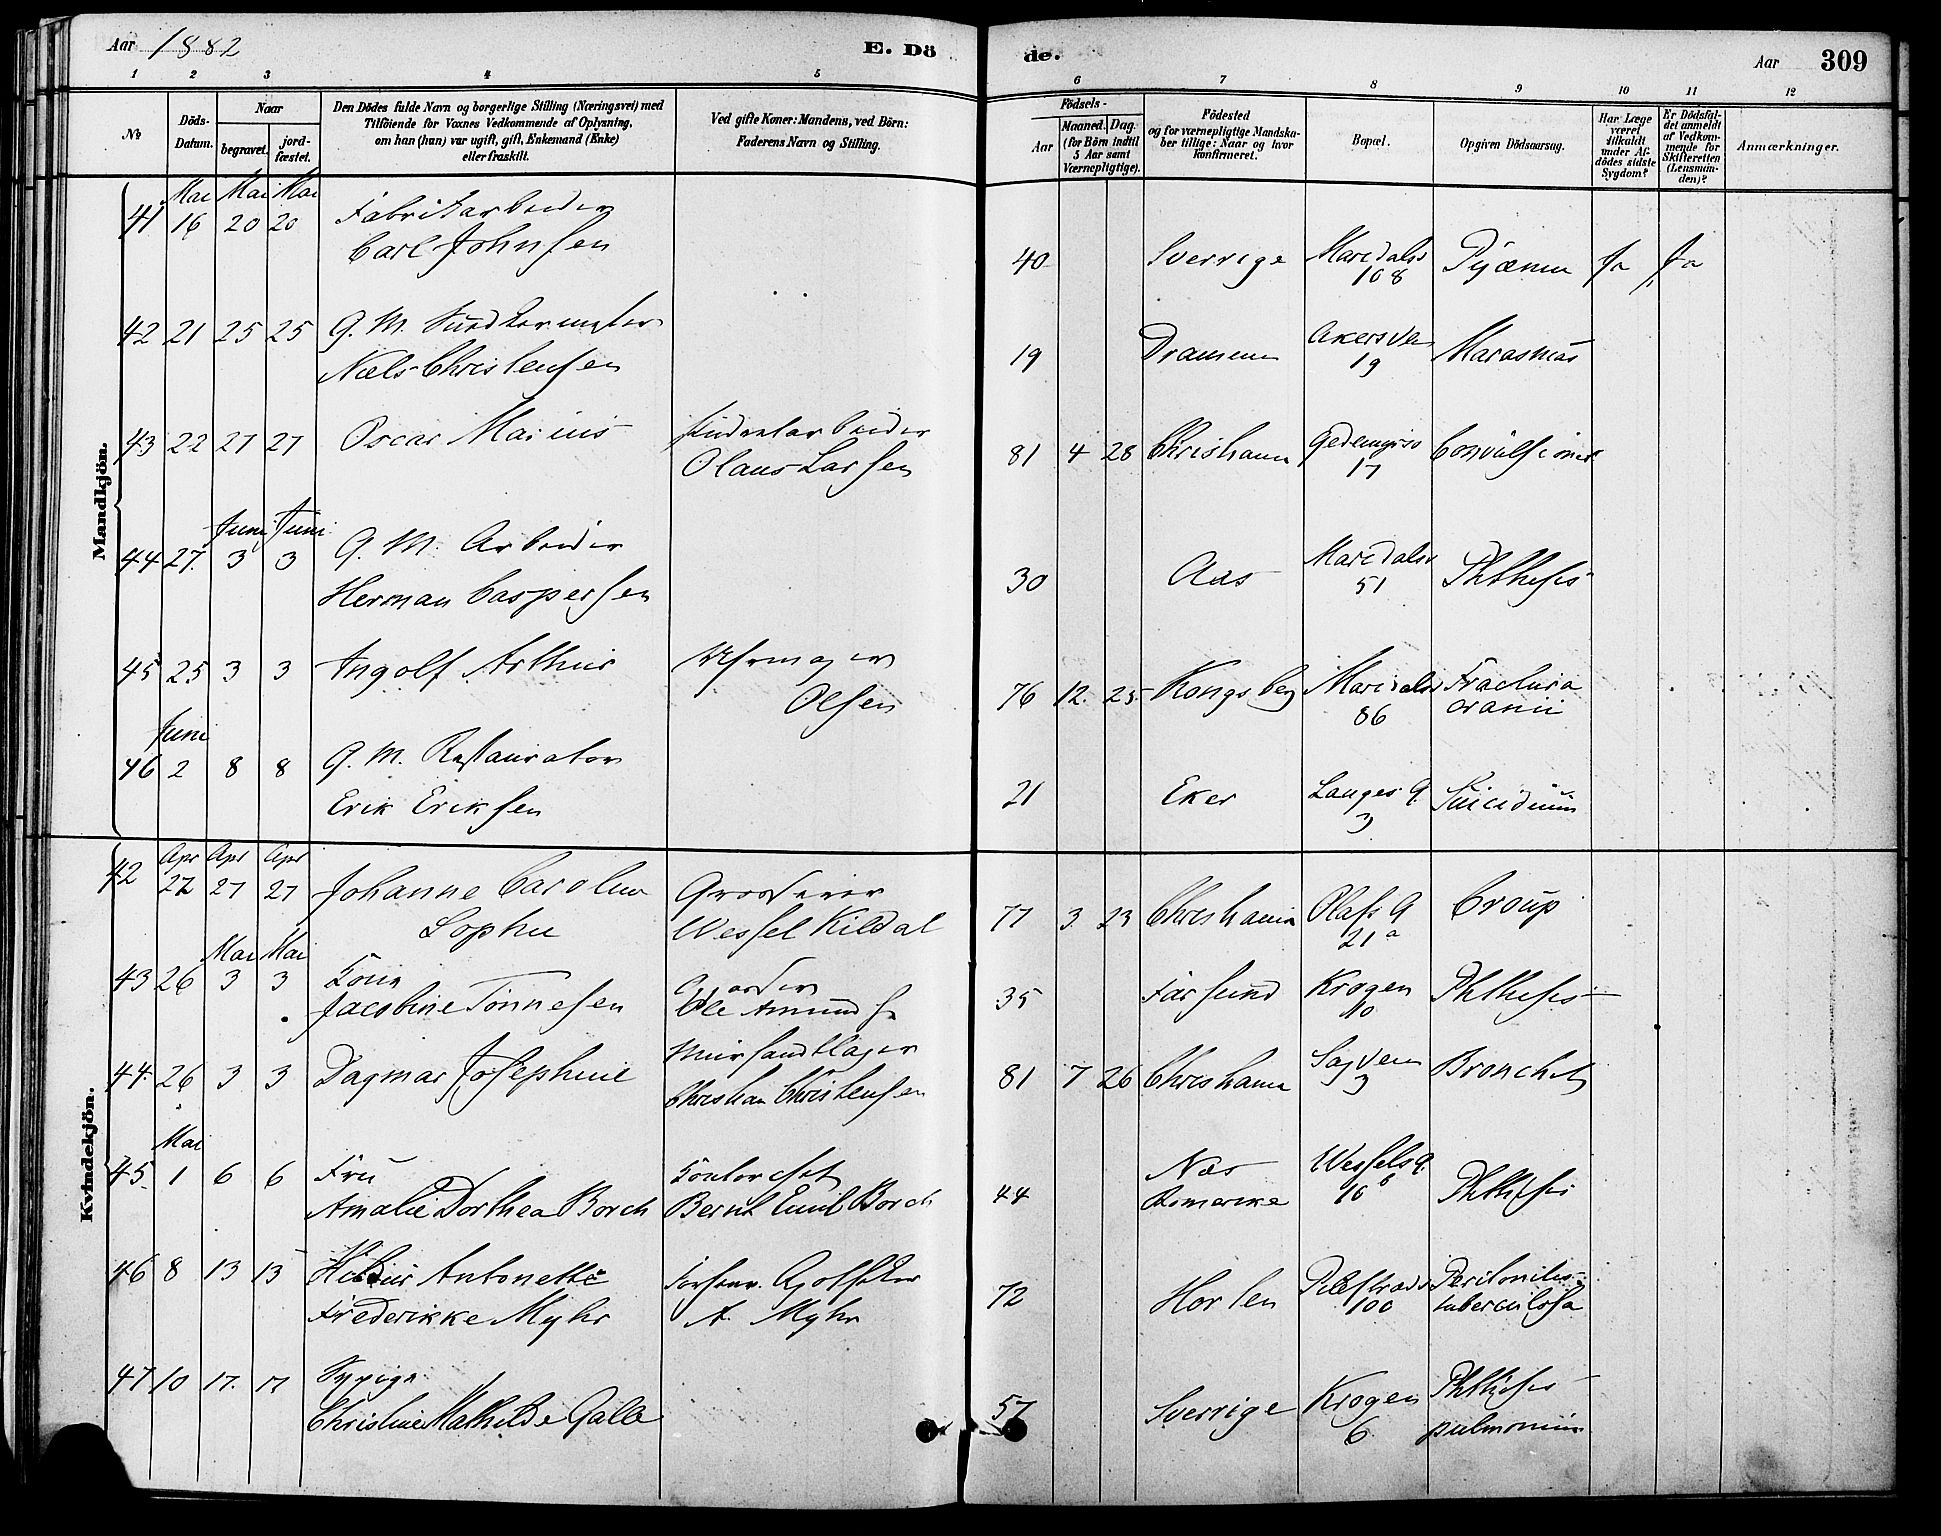 Aar 1882 E. Dö de. Aar 309
1 2 3 4 5 6 7 8 9 10 11 12
No
Döds-
Datum.
Naar
begravet.
jord-
fæstet.
Den Dödes fulde Navn og borgerlige Stilling (Næringsvei) med
Tilföiende for Voxnes Vedkommende af Oplysning,
om han (hun) var ugift, gift, Enkemand (Enke)
eller fraskilt.
Ved gifte Koner: Mandens, ved Börn:
Faderens Navn og Stilling.
Födsels-
Aar
Maaned. Dag.
(for Börn indtil
5 Aar samt
Værnepligtige).
Födested
og for værnepligtige Mandska-
ber tillige: Naar og hvor
konfirmeret.
Bopæl.
Opgiven Dödsaarsag.
Har Læge
været
tilkaldt
under Af-
dödes sidste
Sygdom?
Er Dödsfal-
det anmeldt
af Vedkom-
mende for
Skifteretten
(Lensman-
den)?
Anmærkninger.
Mandkjön.
Mai Mai Mai
41 16 20 20 Fabrikarbeider
Carl Johnsen
40 Sverrige Maridalsv 108 Pyæmia Ja Ja
42 21 25 25 G. M.
Niels Christensen
19 Drammen Akersvei 19 Marasmus
43 22 27 27 Oscar Marius
Olaus Larsen
81 4 28 Christiania 17 Convulsiones
Juni Juni
44 27. 3 3 G. M. Arbeider
Herman Caspersen
30 Aas Maridalsv 51 Phthisis
45 25 3 3 Ingolf Arthur
Uhrmager
Olsen
76 12. 25. Kongsberg Maridalsv 86 Fractura cranii
Juni
46 2 8 8 G. M. Restaurator
Erik Eriksen
21 Eker Langes G. 3 Suicidium
Kvindekjön.
Apr Apr Apr
42 22 27 27 Johanne Caroline
Sophie
Grosserer
Wessel Kildal
77 3. 23 Christiania Olafs G 21a Croup
Mai Mai
43 26 3 3 Kone
Jacobine Tönnesen
Ole Amunds
35 Farsund Krogen 10 Phthisis
44. 26 3 3 Dagmar Josephine
Christian Christensen
81 7 26 Christiania Sagvein 3 Bronchit
Mai
45. 1 6 6 Fru
Amalie Dorthea Borch
Kontorchef
Bernt Emil Borch
44 Næs Romerike Wessels G. 16 b Phthisis
46 8 13 13 Antonette
Frederikke Myhr
A. Myhr
72 Horten Pilestræde 100 Peritonitis tuberculosa
47 10 17. 17 Sypige
Christine Mathilde Galle
57 Sverrige Krogen 6 Phthisis pulmonum